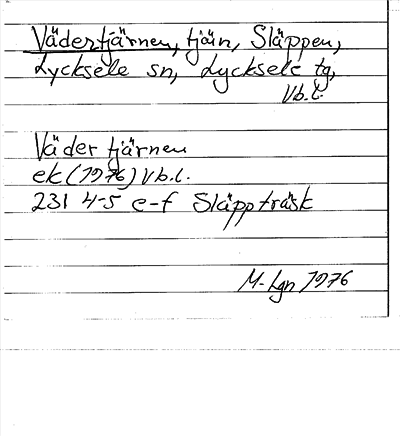 Vädertjärnen, tjärn, Släppen,
Lycksele sn, Lycksele tg,
Vb.l.
Väder tjärnen
ek (1976) Vb.l.
231 4-5 e-f Släppträsk
M-Lgn 1976